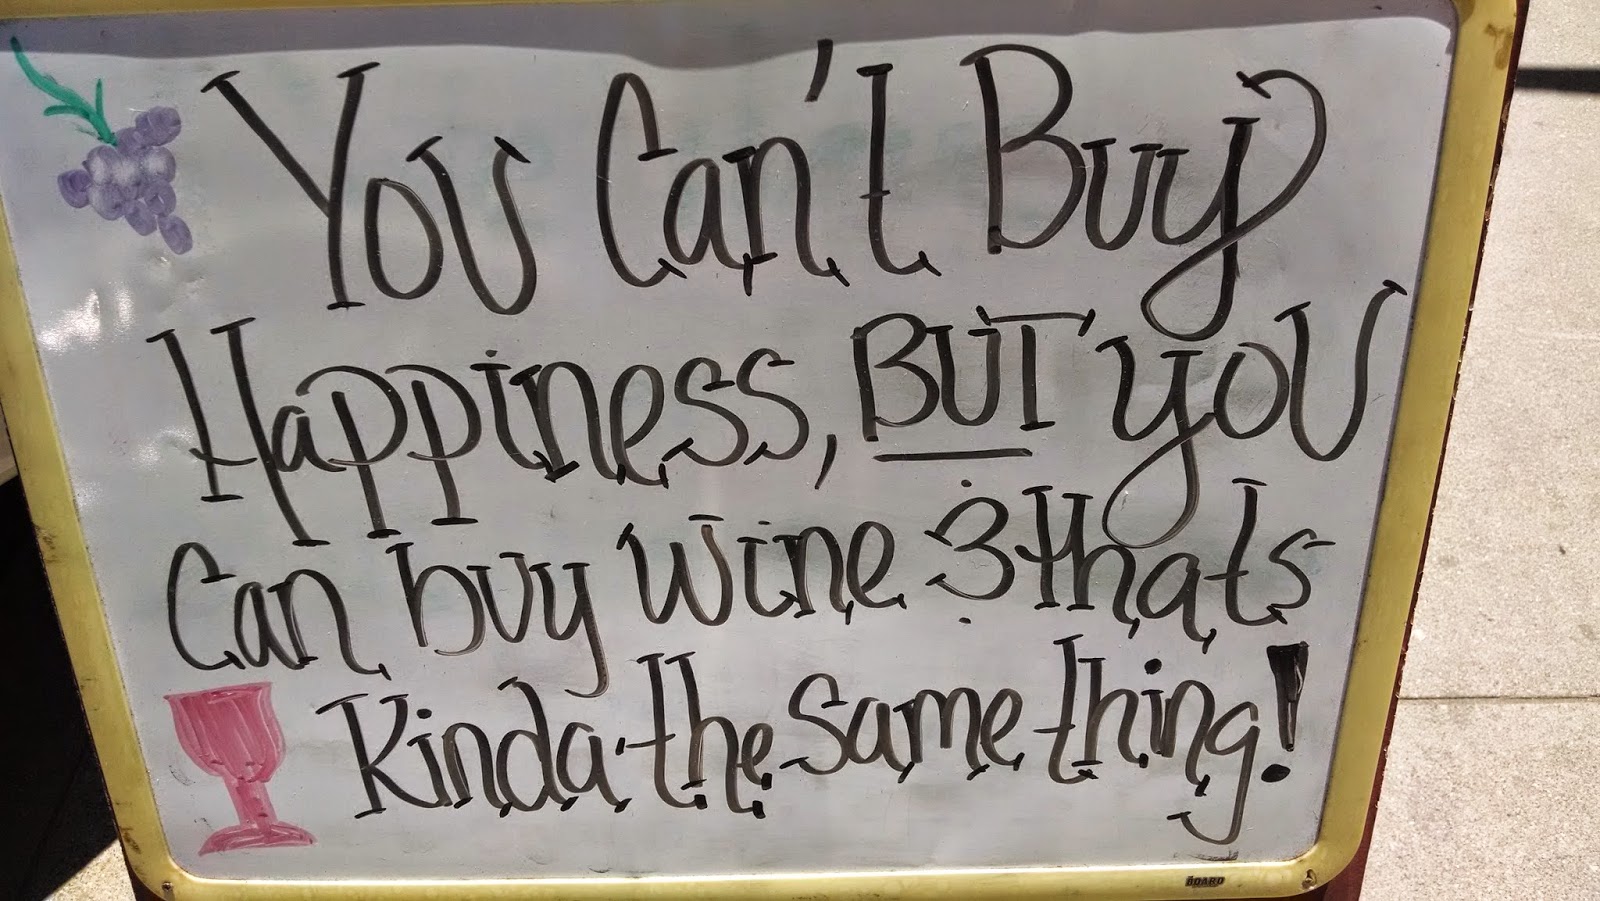 You Can't Buy
Happiness, BUT you
Can buy wine & thats
Kinda the same thing!
BOARD